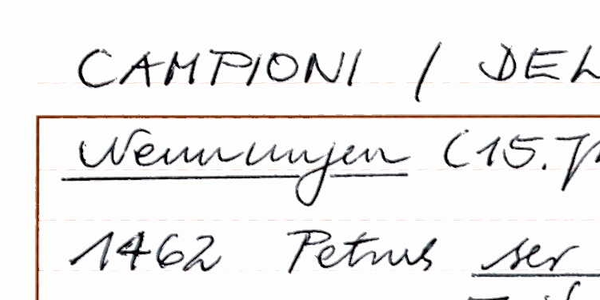 CAMPIONI / DEL
Nennungen (15. J
1462 Petrus ser